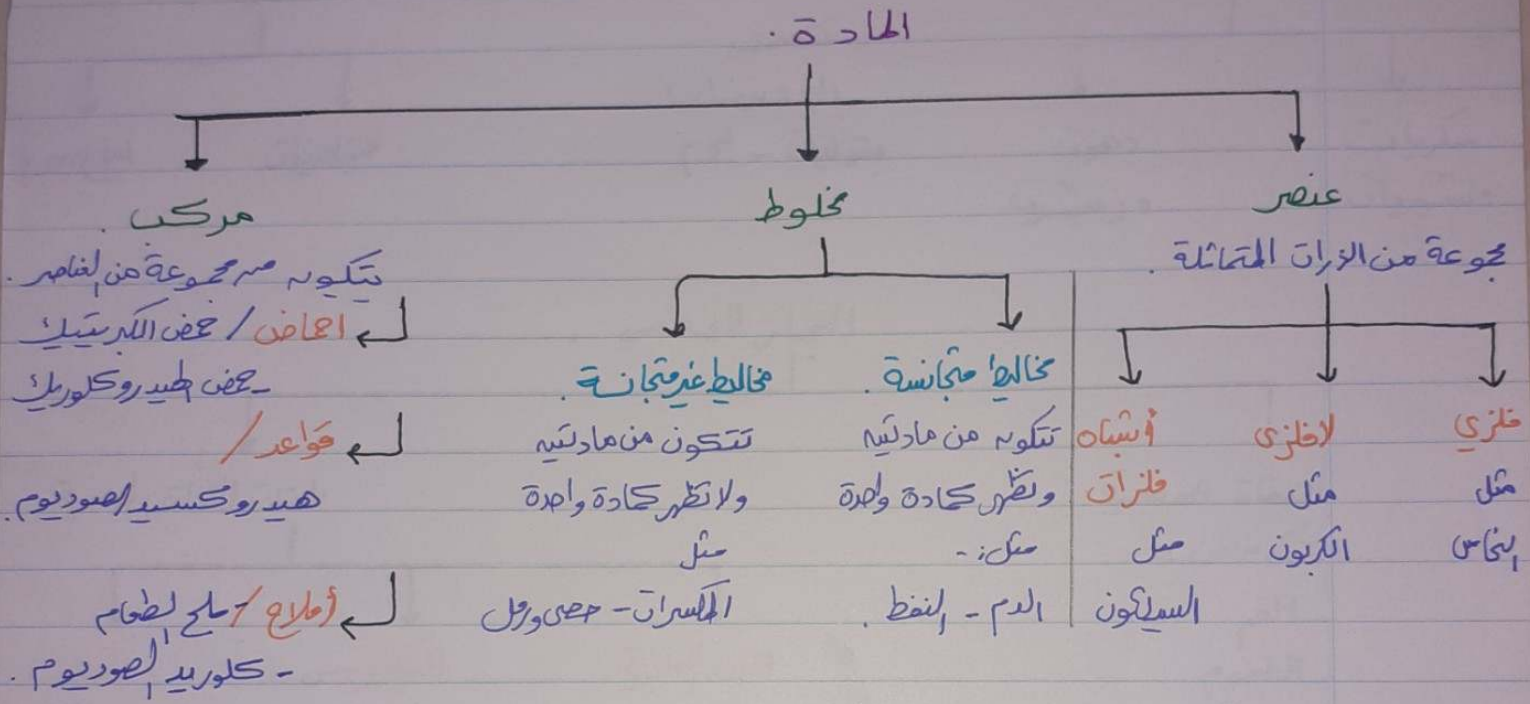 المادة .
عنصر
مجموعة من الذرات المتماثلة .
فلزي
مثل
النحاس
لافلزي
مثل
الكربون
أشباه
فلزات
مثل
السيليكون
مخلوط
مخاليط متجانسة .
تتكون من مادتين
وتظهر كمادة واحدة
مثل :-
الدم - النفط .
مخاليط غير متجانسة .
تتكون من مادتين
ولا تظهر كمادة واحدة
مثل
المكسرات - حصى ورمل
مركب .
يتكون من مجموعة من العناصر .
احماض / حمض الكبريتيك
- حمض الهيدروكلوريك
قواعد /
هيدروكسيد الصوديوم .
أملاح / - ملح الطعام
- كلوريد الصوديوم .